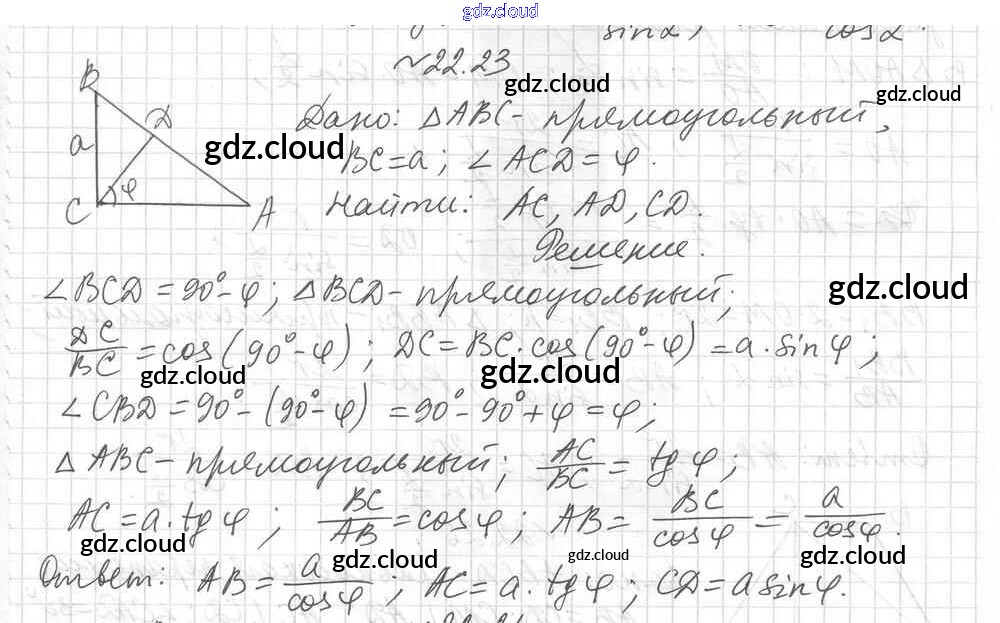 gdz.cloud
sin α, cos α.
~22.23
gdz.cloud
gdz.cloud
B
D
a
φ
C
A
gdz.cloud
Дано: △ABC - прямоугольный,
BC = a; ∠ACD = φ.
Найти: AC, AD, CD.
Решение.
∠BCD = 90° - φ; △BCD - прямоугольный;
gdz.cloud
DC/BC = cos(90° - φ); DC = BC · cos(90° - φ) = a · sin φ;
gdz.cloud
gdz.cloud
∠CBD = 90° - (90° - φ) = 90° - 90° + φ = φ;
△ABC - прямоугольный; AC/BC = tg φ;
AC = a · tg φ; BC/AB = cos φ; AB = BC/cos φ = a/cos φ.
gdz.cloud
gdz.cloud
gdz.cloud
gdz.cloud
Ответ: AB = a/cos φ; AC = a · tg φ; CD = a sin φ.